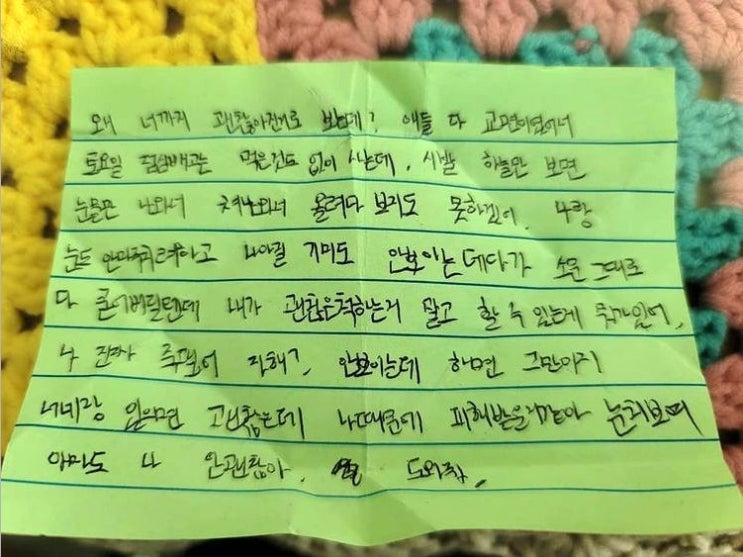 왜 너까지 괜찮아진거로 보는데? 애들 다 교면이였어서
토요일 점심배고는 먹은것도 없이 사는데. 시발 하늘만 보면
눈물만 나와서 쳐나와서 올려다 보지도 못하겠어. 나랑
눈도 안마주치려하고 나아질 기미도 안보이는데다가 소문 그대로
다 믿어버릴텐데 내가 괜찮은척하는거 말고 할 수 있는게 뭐가있어.
나 진짜 죽고싶어 지혜?. 안보이는데 하면 그만이지
너네랑 있으면 괜찮은데 나때문에 피해받을거같아 눈치보며
아마도 나 안괜찮아. 도와줘.